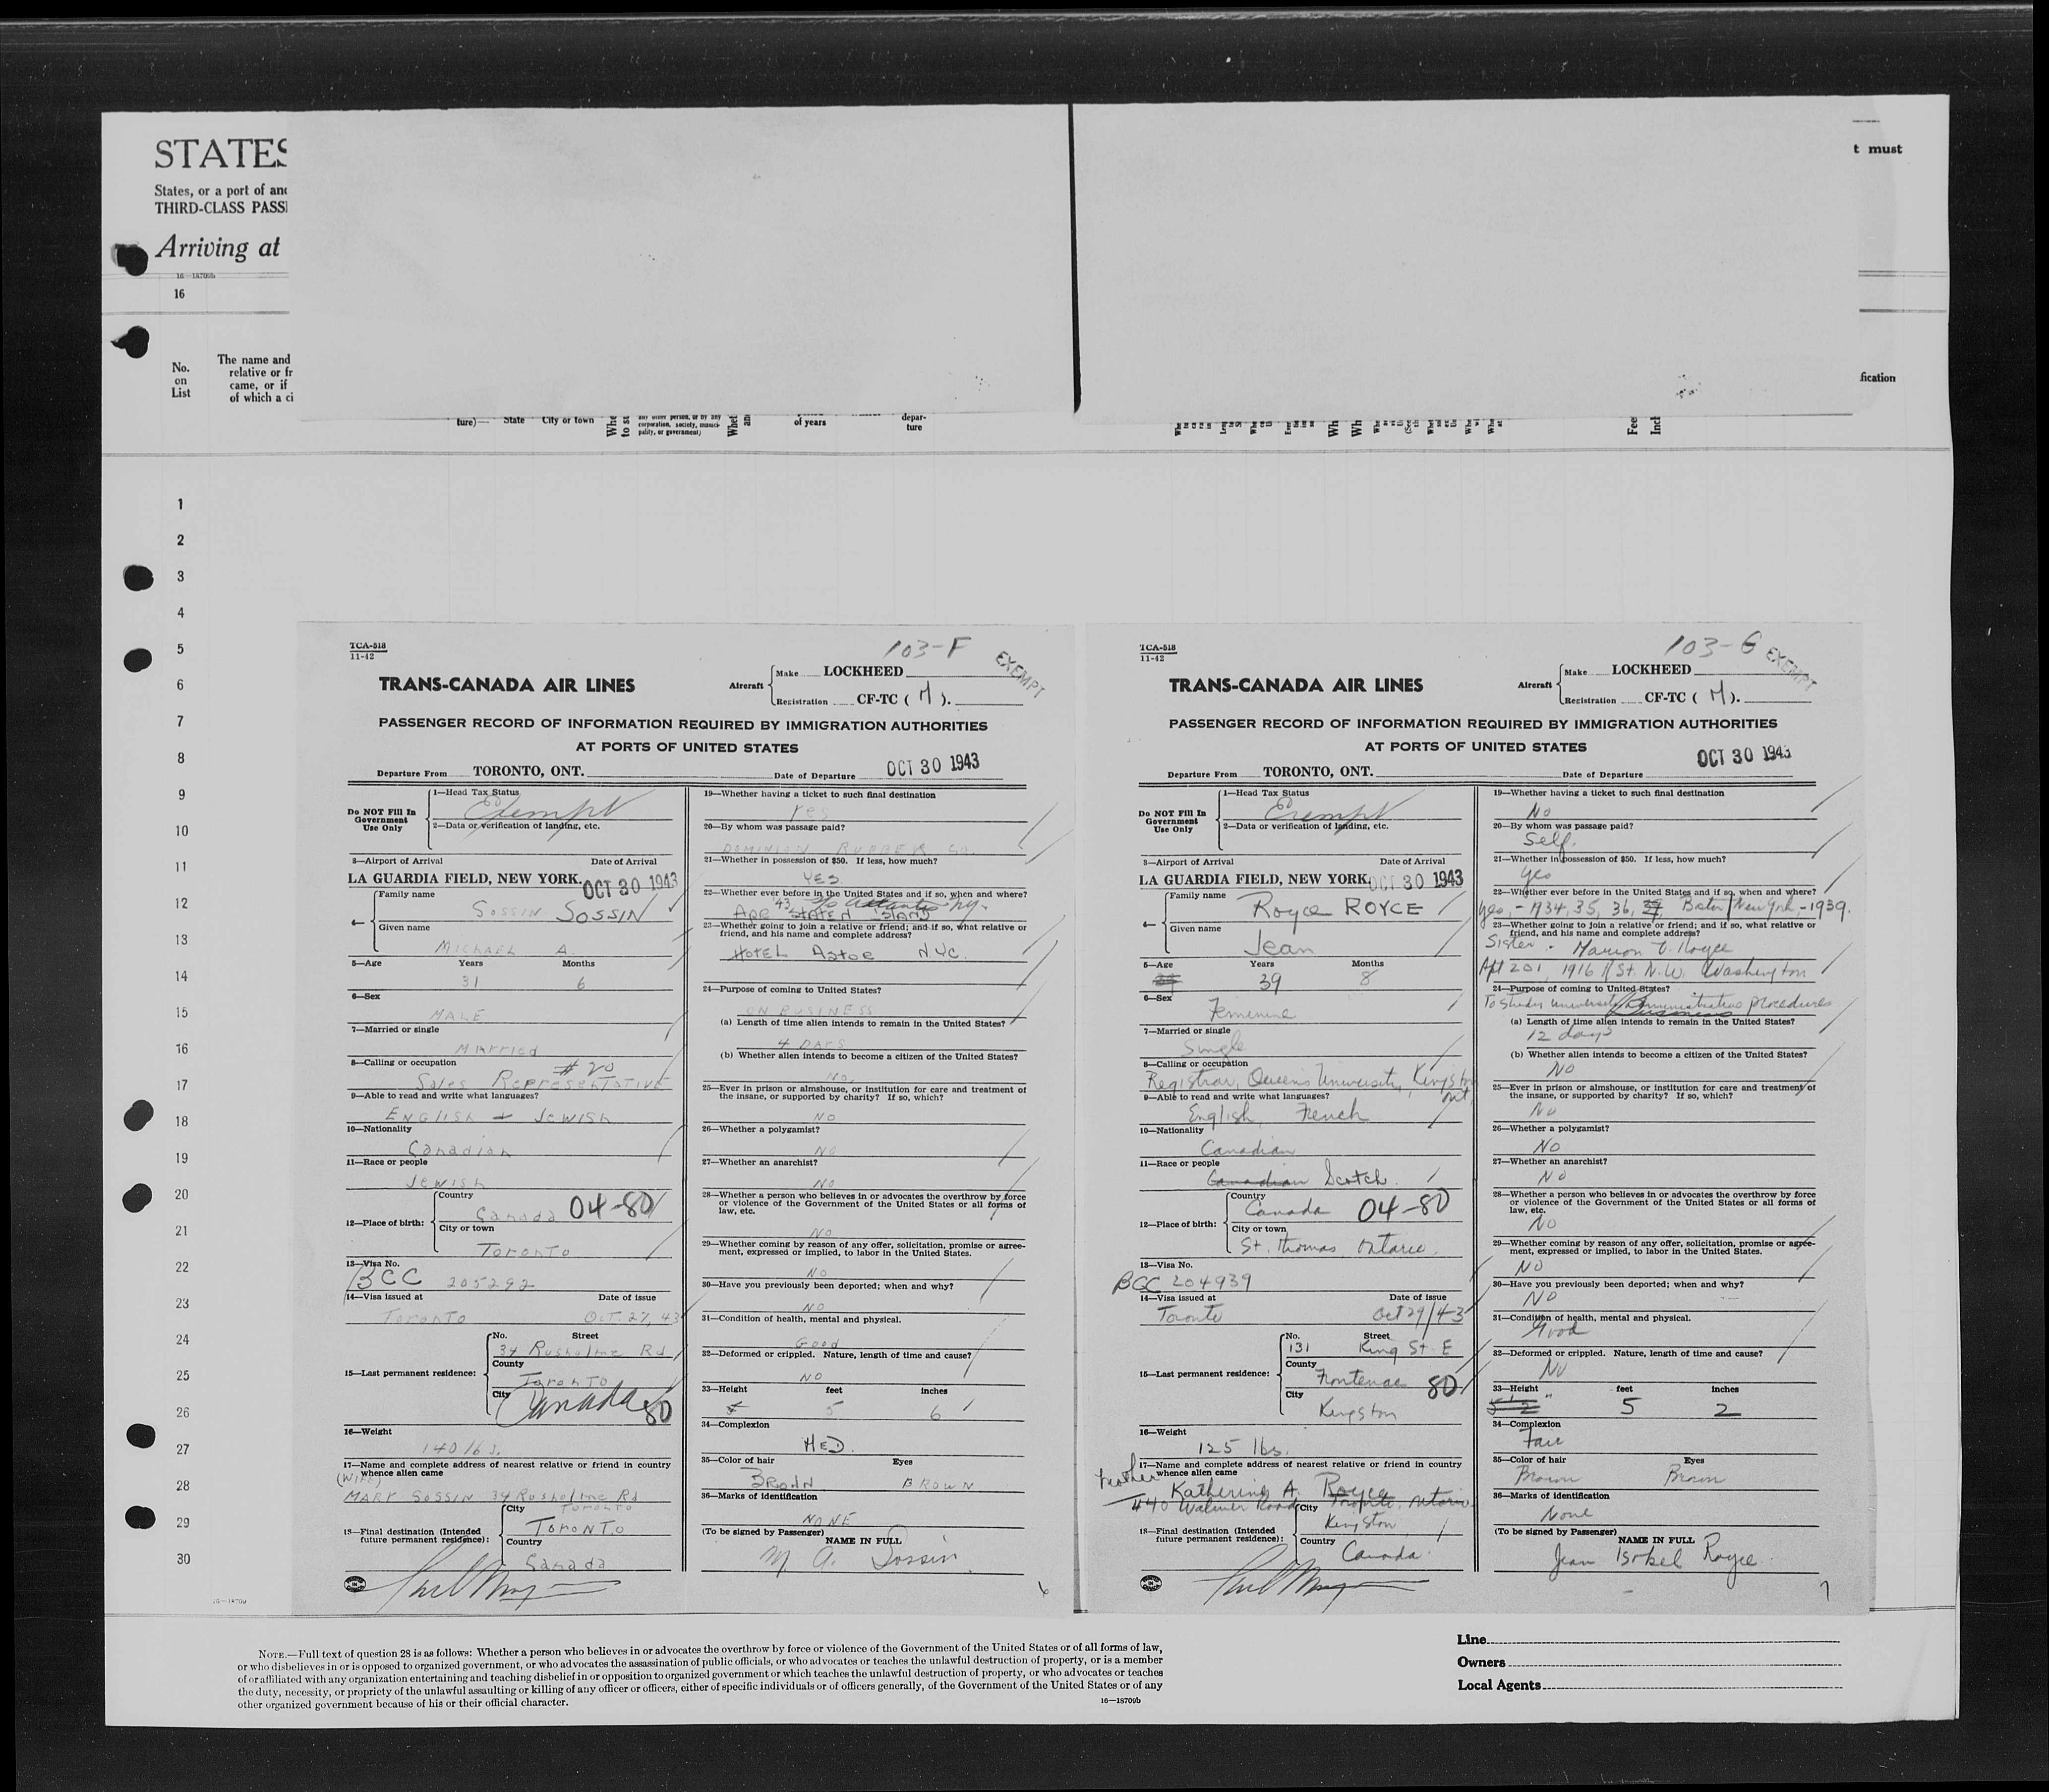 STATES
States, or a port of
THIRD-CLASS
Arriving at
16—18709b
16
t must
No.
on
List
The name and
relative or
came, or if
of which a
fication
ture)—
State
City or town
any other person, or by any
corporation, society, munici-
pality, or government)
of years
depar-
ture
1
2
3
4
5
6
7
8
9
10
11
12
13
14
15
16
17
18
19
20
21
22
23
24
25
26
27
28
29
30
16—18709
TCA-518
11-42
103-F
EXEMPT
TRANS-CANADA AIR LINES
Aircraft
Make LOCKHEED
Registration CF-TC ( M ).
PASSENGER RECORD OF INFORMATION REQUIRED BY IMMIGRATION AUTHORITIES
AT PORTS OF UNITED STATES
Departure From TORONTO, ONT. Date of Departure OCT 30 1943
Do NOT Fill In
Government
Use Only
1—Head Tax Status
Exempt
2—Data or verification of landing, etc.
3—Airport of Arrival Date of Arrival
LA GUARDIA FIELD, NEW YORK. OCT 30 1943
4—
Family name
SOSSIN SOSSIN
Given name
MICHAEL A
5—Age Years Months
31 6
6—Sex
MALE
7—Married or single
Married
8—Calling or occupation
# 20
Sales Representative
9—Able to read and write what languages?
ENGLISH + JEWISH
10—Nationality
Canadian
11—Race or people
Jewish
12—Place of birth:
Country
Canada 04-80
City or town
TORONTO
13—Visa No.
BCC 205292
14—Visa issued at Date of issue
TORONTO OCT. 27, 43
15—Last permanent residence:
No. Street
34 Rusholme Rd
County
TORONTO
City
Canada 80
16—Weight
140 lbs.
17—Name and complete address of nearest relative or friend in country
whence alien came
(WIFE)
MARY SOSSIN 34 Rusholme Rd
TORONTO
18—Final destination (Intended
future permanent residence):
City
TORONTO
Country
Canada
19—Whether having a ticket to such final destination
Yes
20—By whom was passage paid?
DOMINION RUBBER CO.
21—Whether in possession of $50. If less, how much?
YES
22—Whether ever before in the United States and if so, when and where?
Apr '43 STATEN ISLAND NY.
23—Whether going to join a relative or friend; and if so, what relative or
friend, and his name and complete address?
HOTEL Astor NYC.
24—Purpose of coming to United States?
ON BUSINESS
(a) Length of time alien intends to remain in the United States?
4 DAYS
(b) Whether alien intends to become a citizen of the United States?
No.
25—Ever in prison or almshouse, or institution for care and treatment of
the insane, or supported by charity? If so, which?
NO
26—Whether a polygamist?
NO
27—Whether an anarchist?
NO
28—Whether a person who believes in or advocates the overthrow by force
or violence of the Government of the United States or all forms of
law, etc.
NO
29—Whether coming by reason of any offer, solicitation, promise or agree-
ment, expressed or implied, to labor in the United States.
NO
30—Have you previously been deported; when and why?
NO
31—Condition of health, mental and physical.
Good
32—Deformed or crippled. Nature, length of time and cause?
NO
33—Height feet inches
5 6
34—Complexion
MED.
35—Color of hair Eyes
BROWN BROWN
36—Marks of identification
NONE
(To be signed by Passenger)
NAME IN FULL
M. A. Sossin
TCA-518
11-42
103-G
EXEMPT
TRANS-CANADA AIR LINES
Aircraft
Make LOCKHEED
Registration CF-TC ( M ).
PASSENGER RECORD OF INFORMATION REQUIRED BY IMMIGRATION AUTHORITIES
AT PORTS OF UNITED STATES
Departure From TORONTO, ONT. Date of Departure OCT 30 1943
Do NOT Fill In
Government
Use Only
1—Head Tax Status
Exempt
2—Data or verification of landing, etc.
3—Airport of Arrival Date of Arrival
LA GUARDIA FIELD, NEW YORK. OCT 30 1943
4—
Family name
Royce ROYCE
Given name
Jean
5—Age Years Months
39 8
6—Sex
Feminine
7—Married or single
Single
8—Calling or occupation
Registrar, Queen's University, Kingston
Ont
9—Able to read and write what languages?
English, French
10—Nationality
Canadian
11—Race or people
Canadian Scotch
12—Place of birth:
Country
Canada 04-80
City or town
St. Thomas, Ontario.
13—Visa No.
BCC 204939
14—Visa issued at Date of issue
Toronto Oct 29/43
15—Last permanent residence:
No. Street
131 King St. E
County
Frontenac 80
City
Kingston
16—Weight
125 lbs.
17—Name and complete address of nearest relative or friend in country
whence alien came
Mother
Katherine A. Royce
440 Walmer Road Toronto, Ontario
18—Final destination (Intended
future permanent residence):
City
Kingston
Country
Canada
19—Whether having a ticket to such final destination
No
20—By whom was passage paid?
Self.
21—Whether in possession of $50. If less, how much?
Yes
22—Whether ever before in the United States and if so, when and where?
Yes, - 1934, 35, 36, 37, Boston, New York, - 1939.
23—Whether going to join a relative or friend; and if so, what relative or
friend, and his name and complete address?
Sister - Marion V. Royce
Apt 201, 1916 R St. N.W. Washington
24—Purpose of coming to United States?
To study university administrative procedures
Business
(a) Length of time alien intends to remain in the United States?
12 days
(b) Whether alien intends to become a citizen of the United States?
No
25—Ever in prison or almshouse, or institution for care and treatment of
the insane, or supported by charity? If so, which?
No
26—Whether a polygamist?
No
27—Whether an anarchist?
No
28—Whether a person who believes in or advocates the overthrow by force
or violence of the Government of the United States or all forms of
law, etc.
No
29—Whether coming by reason of any offer, solicitation, promise or agree-
ment, expressed or implied, to labor in the United States.
No
30—Have you previously been deported; when and why?
No
31—Condition of health, mental and physical.
Good
32—Deformed or crippled. Nature, length of time and cause?
No
33—Height feet inches
5 2
34—Complexion
Fair
35—Color of hair Eyes
Brown Brown
36—Marks of identification
None
(To be signed by Passenger)
NAME IN FULL
Jean Isobel Royce
7
NOTE.—Full text of question 28 is as follows: Whether a person who believes in or advocates the overthrow by force or violence of the Government of the United States or of all forms of law,
or who disbelieves in or is opposed to organized government, or who advocates the assassination of public officials, or who advocates or teaches the unlawful destruction of property, or is a member
of or affiliated with any organization entertaining and teaching disbelief in or opposition to organized government or which teaches the unlawful destruction of property, or who advocates or teaches
the duty, necessity, or propriety of the unlawful assaulting or killing of any officer or officers, either of specific individuals or of officers generally, of the Government of the United States or of any
other organized government because of his or their official character.
16—18709b
Line
Owners
Local Agents